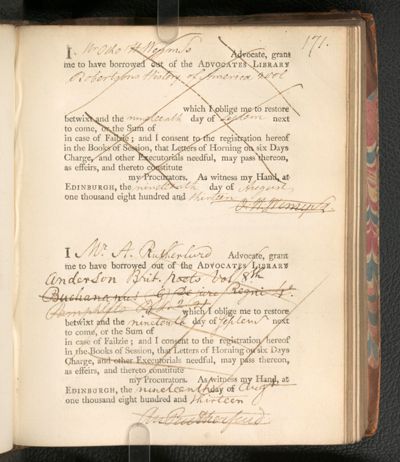 171.
I, Mr Jno H Wemyss Advocate, grant
me to have borrowed out of the ADVOCATES LIBRARY
Robertsons History of America
which I oblige me to restore
betwixt and the nineteenth day of Septem next
to come, or the Sum of
in case of Failzie; and I consent to the registration hereof
in the Books of Session, that Letters of Horning on six Days
Charge, and other Executorials needful, may pass thereon,
as effeirs, and thereto constitute
my Procurators. As witness my Hand, at
EDINBURGH, the nineteenth day of August,
one thousand eight hundred and thirteen
J. H. Wemyss
I Mr. A. Rutherfurd Advocate, grant
me to have borrowed out of the ADVOCATES LIBRARY
Anderson Brit. Poets Vol 8th
Buchananus De jure Regni
Pamphlets which I oblige me to restore
betwixt and the nineteenth day of Septem next
to come, or the Sum of
in case of Failzie; and I consent to the registration hereof
in the Books of Session, that Letters of Horning on six Days
Charge, and other Executorials needful, may pass thereon,
as effeirs, and thereto constitute
my Procurators. As witness my Hand, at
EDINBURGH, the nineteenth day of Augt
one thousand eight hundred and thirteen
Rutherfurd